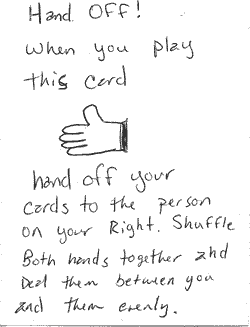 Hand Off!
When you play
this card
hand off your
cards to the person
on your Right. Shuffle
Both hands together and
Deal them between you
and them evenly.